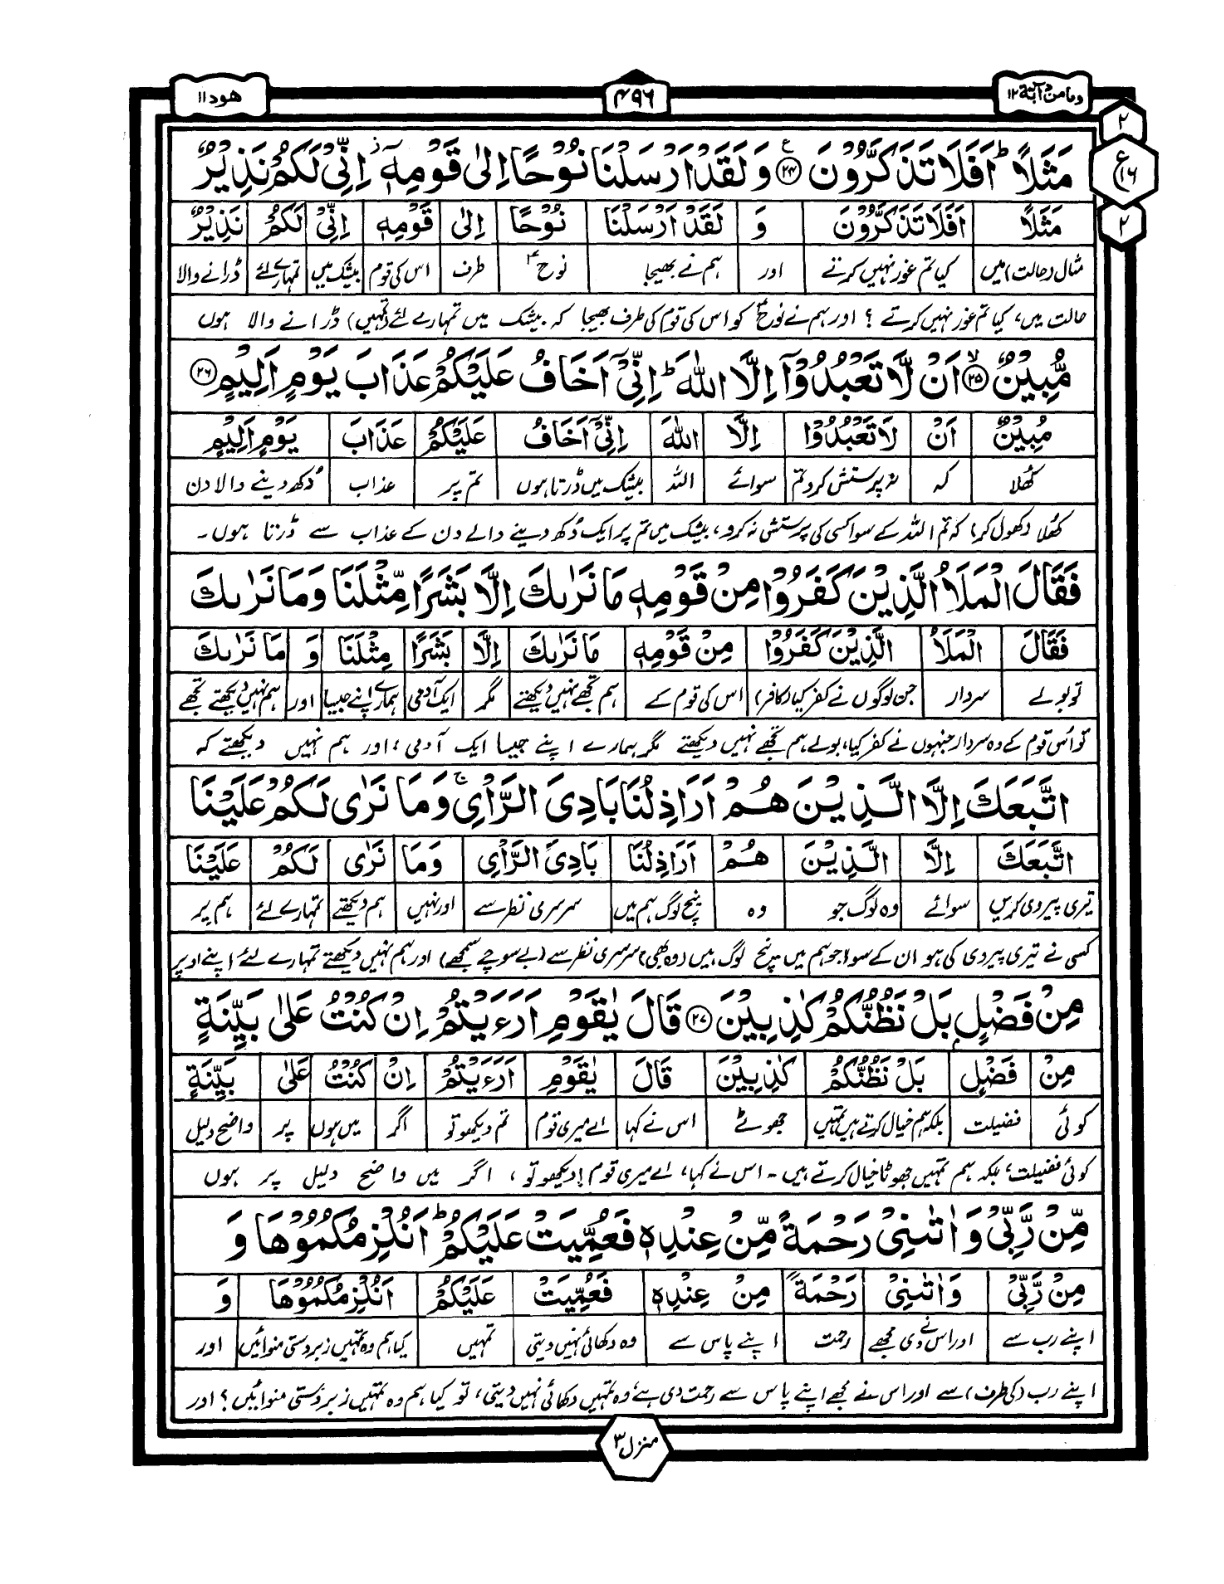 هود ۱۱
۴۹۶
ومامن دآبة ۱۲
۲
ع
۱۶
۲
مَثَلًا ؕ اَفَلَا تَذَكَّرُوْنَ ﴿۲۴﴾ وَ لَقَدْ اَرْسَلْنَا نُوْحًا اِلٰى قَوْمِهٖۤ اِنِّىْ لَكُمْ نَذِيْرٌ
مَثَلًا اَفَلَا تَذَكَّرُوْنَ وَ لَقَدْ اَرْسَلْنَا نُوْحًا اِلٰى قَوْمِهٖ اِنِّىْ لَكُمْ نَذِيْرٌ
مثال (حالت) میں کیا تم غور نہیں کرتے اور ہم نے بھیجا نوحؑ طرف اس کی قوم بیشک میں تمہارے لئے ڈرانے والا
حالت میں، کیا تم غور نہیں کرتے ؟ اور ہم نے نوحؑ کو اس کی قوم کی طرف بھیجا کہ بیشک میں تمہارے لئے (تمہیں) ڈرانے والا ہوں
مُّبِيْنٌ ﴿۲۵﴾ اَنْ لَّا تَعْبُدُوْۤا اِلَّا اللّٰهَ ؕ اِنِّىْۤ اَخَافُ عَلَيْكُمْ عَذَابَ يَوْمٍ اَلِيْمٍ ﴿۲۶﴾
مُبِيْنٌ اَنْ لَا تَعْبُدُوْا اِلَّا اللّٰهَ اِنِّىْۤ اَخَافُ عَلَيْكُمْ عَذَابَ يَوْمٍ اَلِيْمٍ
کھُلا کہ نہ پرستش کرو تم سوائے اللہ بیشک میں ڈرتا ہوں تم پر عذاب دُکھ دینے والا دن
کھُلا (کھول کر) کہ تم اللہ کے سوا کسی کی پرستش نہ کرو، بیشک میں تم پر ایک دُکھ دینے والے دن کے عذاب سے ڈرتا ہوں۔
فَقَالَ الْمَلَاُ الَّذِيْنَ كَفَرُوْا مِنْ قَوْمِهٖ مَا نَرٰىكَ اِلَّا بَشَرًا مِّثْلَنَا وَمَا نَرٰىكَ
فَقَالَ الْمَلَاُ الَّذِيْنَ كَفَرُوْا مِنْ قَوْمِهٖ مَا نَرٰىكَ اِلَّا بَشَرًا مِثْلَنَا وَ مَا نَرٰىكَ
تو بولے سردار جن لوگوں نے کفر کیا (کافر) اس کی قوم کے ہم تجھے نہیں دیکھتے مگر ایک آدمی ہمارے اپنے جیسا اور ہم نہیں دیکھتے تجھے
تو اس قوم کے وہ سردار جنہوں نے کفر کیا، بولے ہم تجھے نہیں دیکھتے مگر ہمارے اپنے جیسا ایک آدمی، اور ہم نہیں دیکھتے کہ
اتَّبَعَكَ اِلَّا الَّذِيْنَ هُمْ اَرَاذِلُنَا بَادِىَ الرَّاْىِ ۚ وَمَا نَرٰى لَكُمْ عَلَيْنَا
اتَّبَعَكَ اِلَّا الَّذِيْنَ هُمْ اَرَاذِلُنَا بَادِىَ الرَّاْىِ وَمَا نَرٰى لَكُمْ عَلَيْنَا
تیری پیروی کریں سوائے وہ لوگ جو وہ نیچ لوگ ہم میں سرسری نظر سے اور نہیں ہم دیکھتے تمہارے لئے ہم پر
کسی نے تیری پیروی کی ہو ان کے سوا جو ہم میں نیچ لوگ ہیں (وہ بھی) سرسری نظر سے (بے سوچے سمجھے) اور ہم نہیں دیکھتے تمہارے لئے اپنے اوپر
مِنْ فَضْلٍۭ بَلْ نَظُنُّكُمْ كٰذِبِيْنَ ﴿۲۷﴾ قَالَ يٰقَوْمِ اَرَءَيْتُمْ اِنْ كُنْتُ عَلٰى بَيِّنَةٍ
مِنْ فَضْلٍ بَلْ نَظُنُّكُمْ كٰذِبِيْنَ قَالَ يٰقَوْمِ اَرَءَيْتُمْ اِنْ كُنْتُ عَلٰى بَيِّنَةٍ
کوئی فضیلت بلکہ ہم خیال کرتے ہیں تمہیں جھوٹے اس نے کہا اے میری قوم تم دیکھو تو اگر میں ہوں پر واضح دلیل
کوئی فضیلت، بلکہ ہم تمہیں جھوٹا خیال کرتے ہیں۔ اس نے کہا، اے میری قوم! دیکھو تو، اگر میں واضح دلیل پر ہوں
مِّنْ رَّبِّىْ وَاٰتٰىنِىْ رَحْمَةً مِّنْ عِنْدِهٖ فَعُمِّيَتْ عَلَيْكُمْ ؕ اَنُلْزِمُكُمُوْهَا وَ
مِنْ رَّبِّىْ وَاٰتٰىنِىْ رَحْمَةً مِنْ عِنْدِهٖ فَعُمِّيَتْ عَلَيْكُمْ اَنُلْزِمُكُمُوْهَا وَ
اپنے رب سے اور اس نے دی مجھے رحمت اپنے پاس سے وہ دکھائی نہیں دیتی تمہیں کیا ہم وہ تمہیں زبردستی منوائیں اور
اپنے رب (کی طرف) سے اور اس نے مجھے اپنے پاس سے رحمت دی ہے وہ تمہیں دکھائی نہیں دیتی، تو کیا ہم وہ تمہیں زبردستی منوائیں؟ اور
منزل ۳